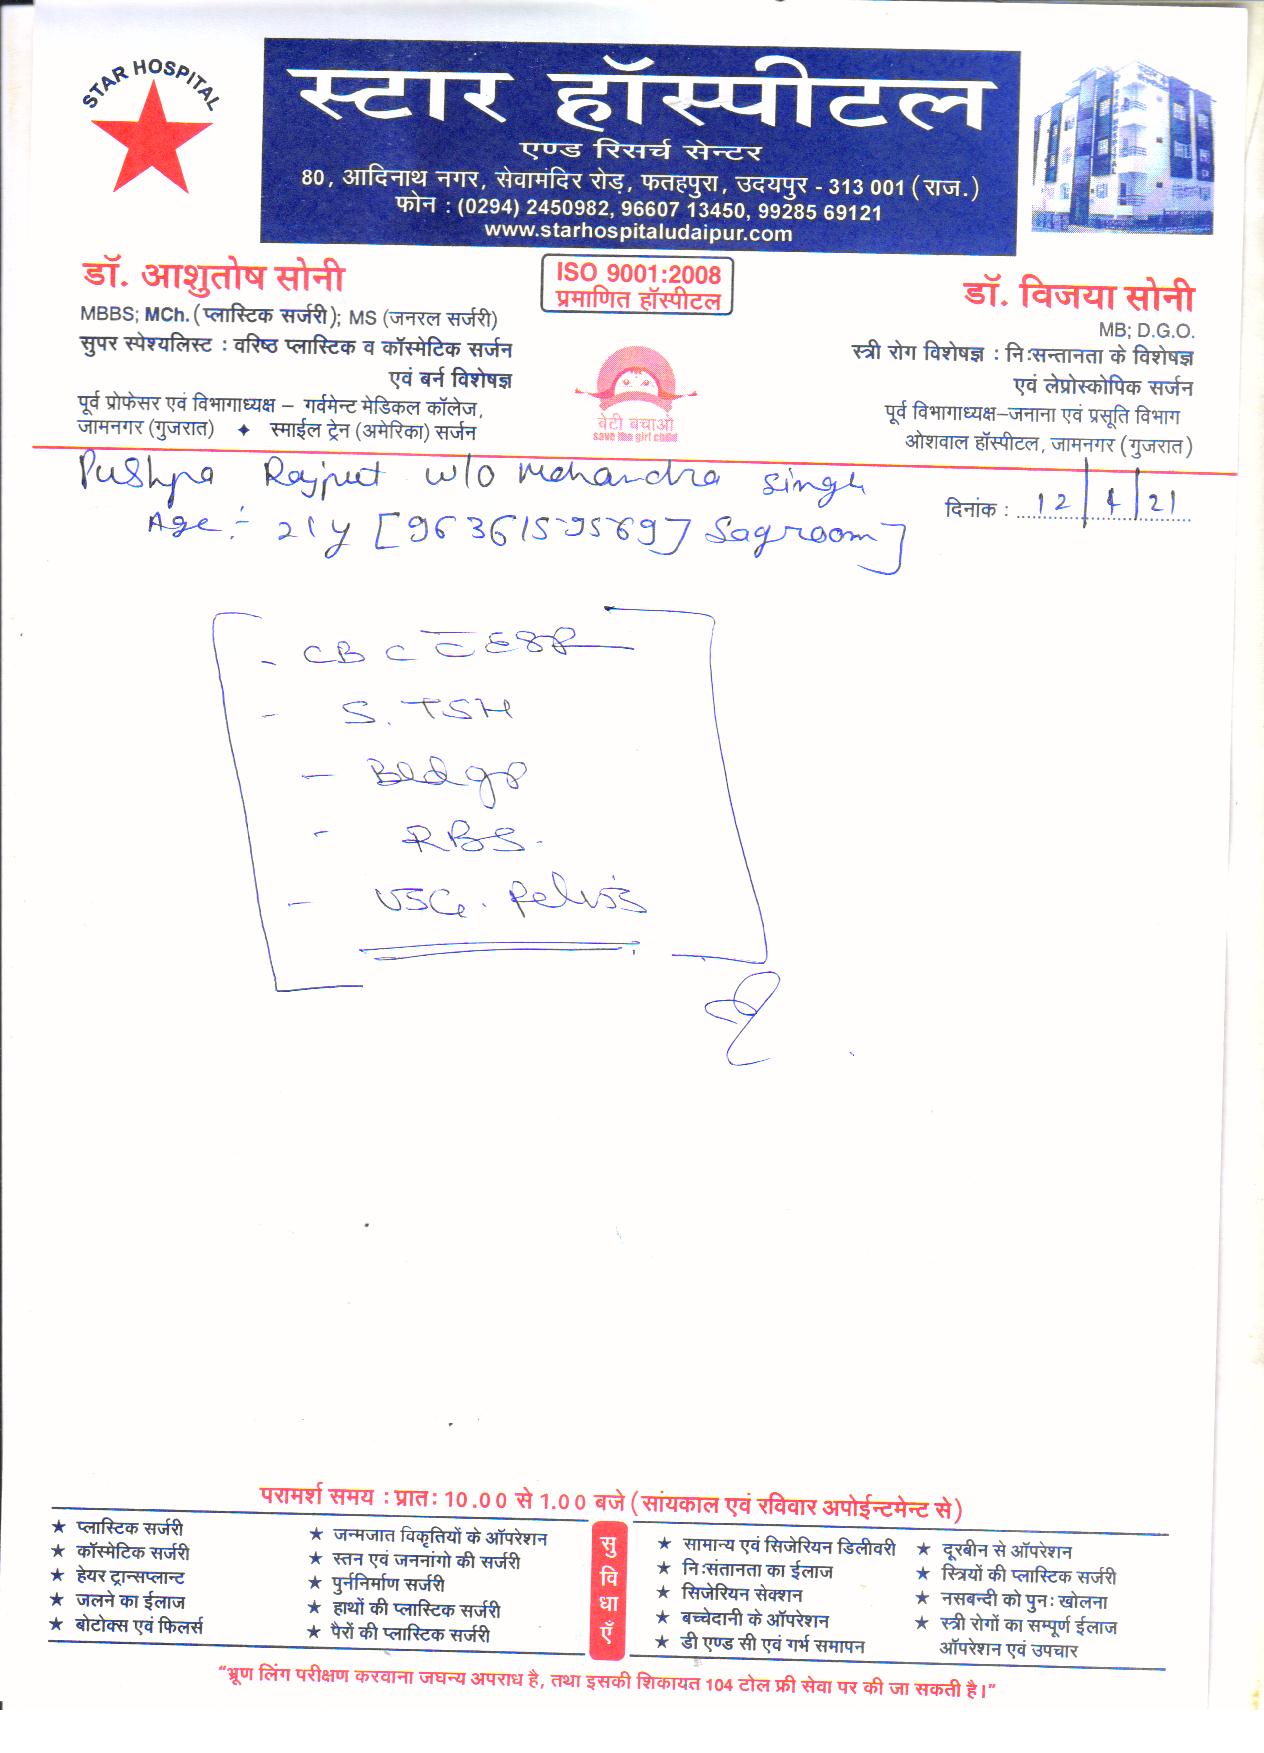 STAR HOSPITAL
स्टार हॉस्पीटल
एण्ड रिसर्च सेन्टर
80, आदिनाथ नगर, सेवामंदिर रोड़, फतहपुरा, उदयपुर - 313 001 (राज.)
फोन : (0294) 2450982, 96607 13450, 99285 69121
www.starhospitaludaipur.com
डॉ. आशुतोष सोनी
MBBS; MCh. (प्लास्टिक सर्जरी); MS (जनरल सर्जरी)
सुपर स्पेश्यलिस्ट : वरिष्ठ प्लास्टिक व कॉस्मेटिक सर्जन
एवं बर्न विशेषज्ञ
पूर्व प्रोफेसर एवं विभागाध्यक्ष – गर्वमेन्ट मेडिकल कॉलेज,
जामनगर (गुजरात) ✦ स्माईल ट्रेन (अमेरिका) सर्जन
ISO 9001:2008
प्रमाणित हॉस्पीटल
बेटी बचाओ
save the girl child
डॉ. विजया सोनी
MB; D.G.O.
स्त्री रोग विशेषज्ञ : निःसन्तानता के विशेषज्ञ
एवं लेप्रोस्कोपिक सर्जन
पूर्व विभागाध्यक्ष–जनाना एवं प्रसूति विभाग
ओशवाल हॉस्पीटल, जामनगर (गुजरात)
Pushpa Rajput w/o Mahandra Singh
दिनांक : 12/4/21
Age :- 21y [9636159569] Sagroom]
- CBC c̄ ESR
- S. TSH
- Bld gp
- RBS.
- USG. Pelvis
परामर्श समय : प्रातः 10.00 से 1.00 बजे (सांयकाल एवं रविवार अपोईन्टमेन्ट से)
★ प्लास्टिक सर्जरी
★ कॉस्मेटिक सर्जरी
★ हेयर ट्रान्सप्लान्ट
★ जलने का ईलाज
★ बोटोक्स एवं फिलर्स
★ जन्मजात विकृतियों के ऑपरेशन
★ स्तन एवं जननांगो की सर्जरी
★ पुर्ननिर्माण सर्जरी
★ हाथों की प्लास्टिक सर्जरी
★ पैरों की प्लास्टिक सर्जरी
सुविधाएँ
★ सामान्य एवं सिजेरियन डिलीवरी
★ निःसंतानता का ईलाज
★ सिजेरियन सेक्शन
★ बच्चेदानी के ऑपरेशन
★ डी एण्ड सी एवं गर्भ समापन
★ दूरबीन से ऑपरेशन
★ स्त्रियों की प्लास्टिक सर्जरी
★ नसबन्दी को पुनः खोलना
★ स्त्री रोगों का सम्पूर्ण ईलाज
ऑपरेशन एवं उपचार
"भ्रूण लिंग परीक्षण करवाना जघन्य अपराध है, तथा इसकी शिकायत 104 टोल फ्री सेवा पर की जा सकती है।"